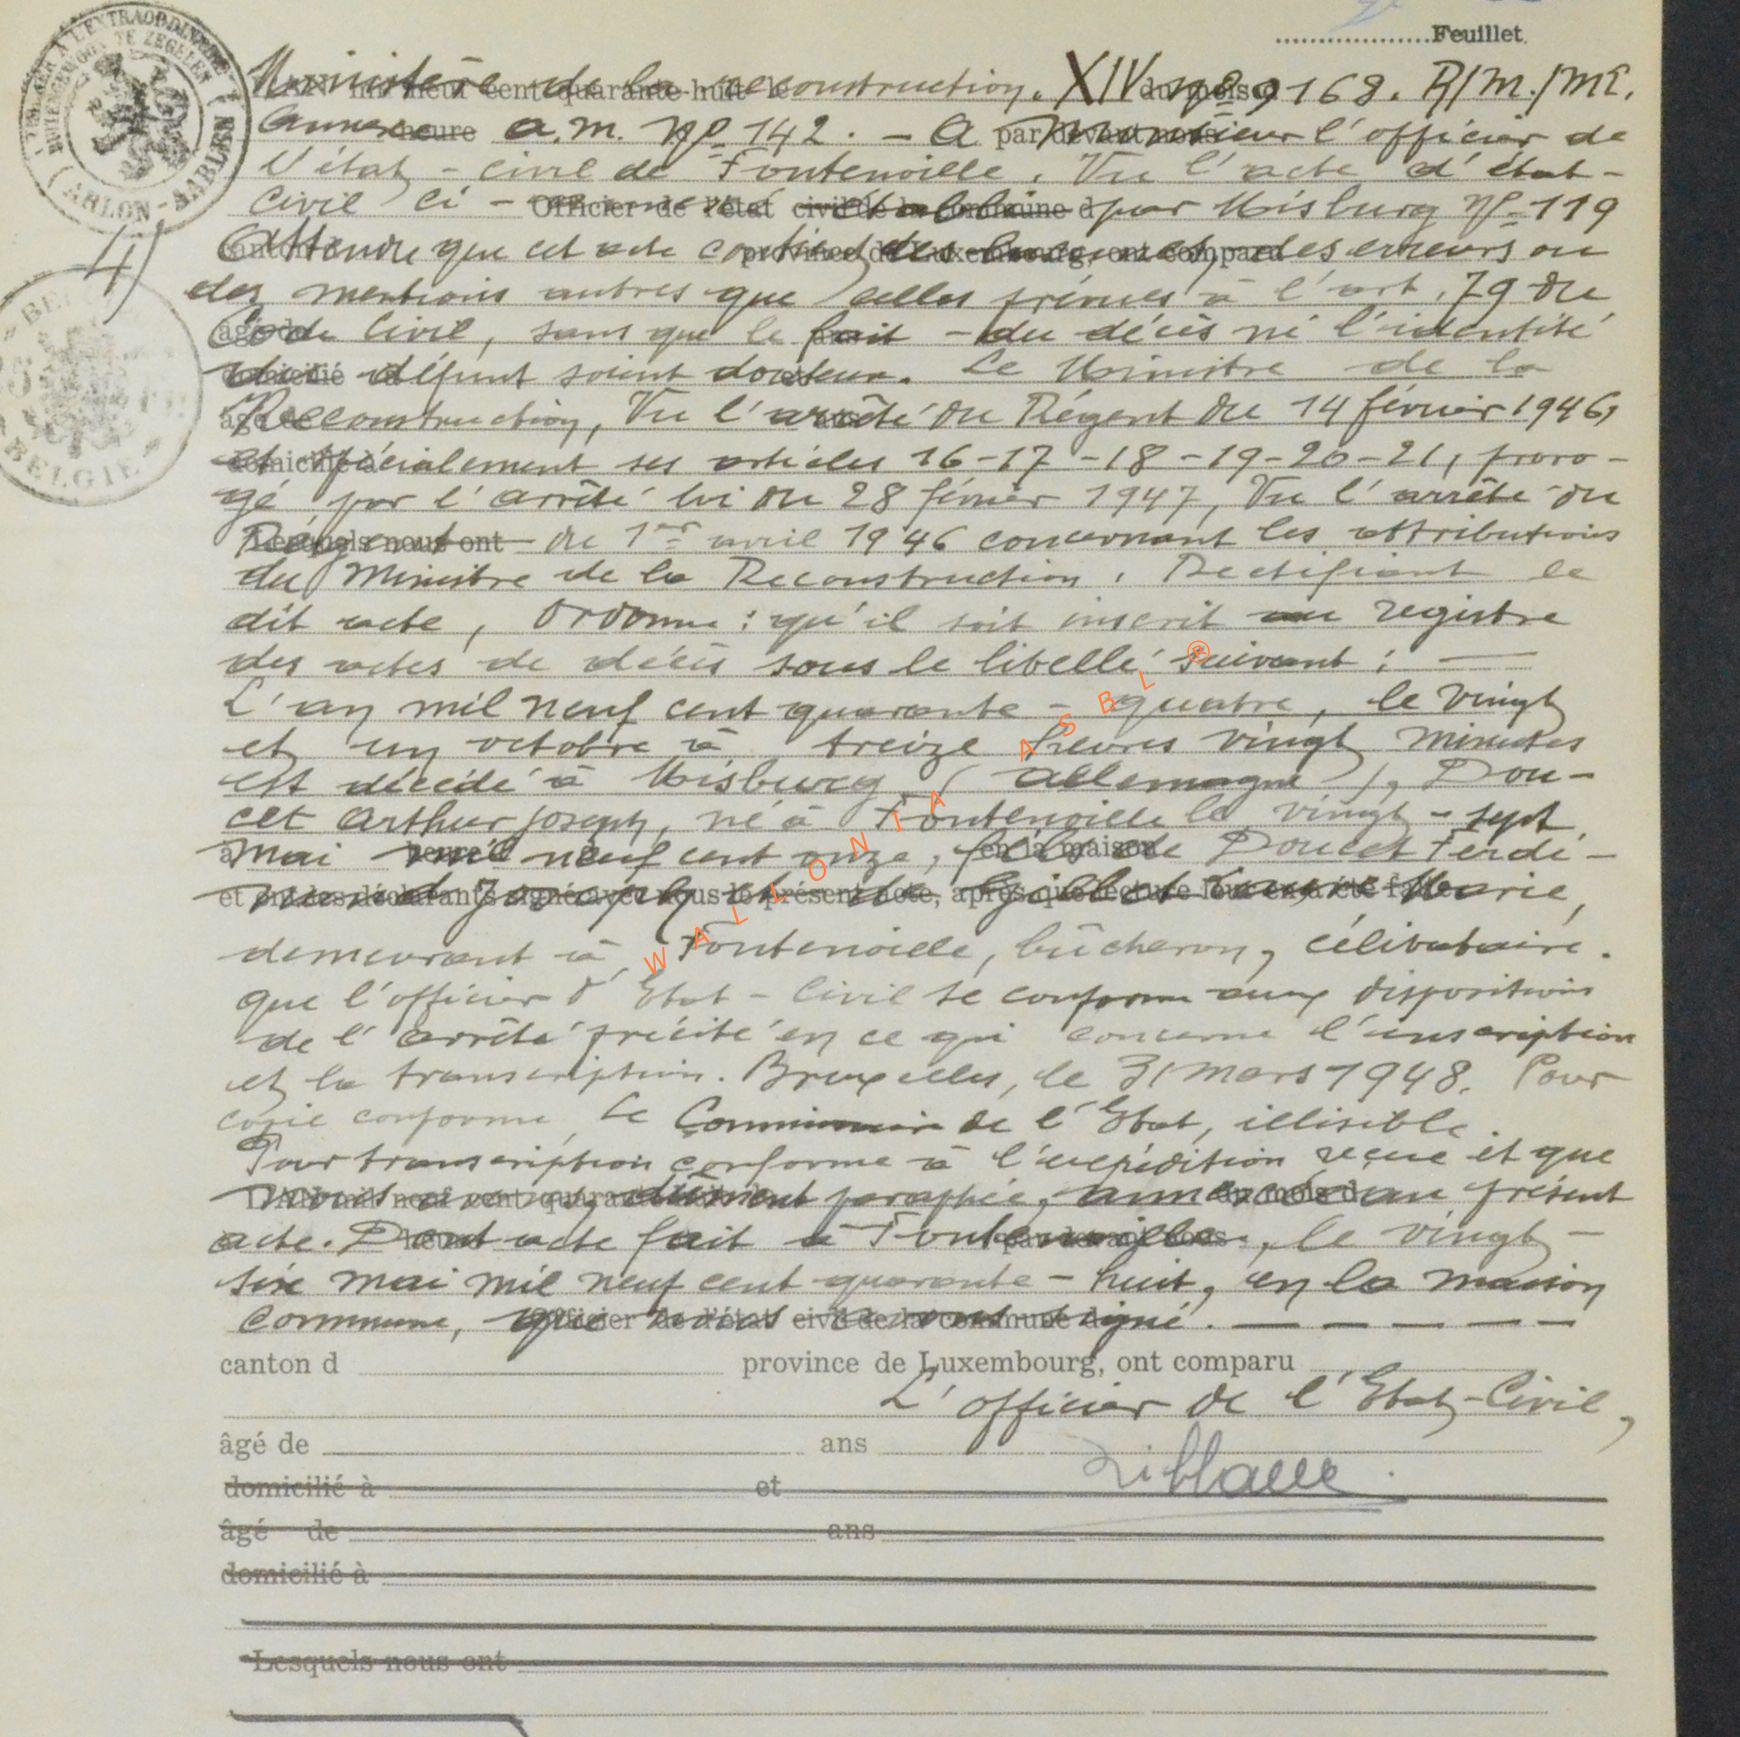 Feuillet
Ministère de la reconstruction. XIV nº 9168. R/M./ME.
Annexe a.m. nº 142. - A Monsieur l'officier de
l'état-civil de Fontenoille. Vu l'acte d'état-
civil ci- par Misburg nº 119
4)
Attendu que cet acte contient des lacunes et, des erreurs ou
des mentions autres que celles prévues à l'art. 79 du
Code Civil, sans que le fait - du décès ni l'identité
du défunt soient douteux. Le Ministre de la
Reconstruction, Vu l'arrêté du Régent du 14 février 1946,
et spécialement ses articles 16-17-18-19-20-21, proro-
gé par l'arrêté loi du 28 février 1947, Vu l'arrêté du
Régent du 1er avril 1946 concernant les attributions
du Ministre de la Reconstruction, Rectifiant le
dit acte, Ordonne : qu'il soit inscrit au registre
des actes de décès sous le libellé suivant :
L'an mil neuf cent quarante-quatre, le vingt
et un octobre à treize heures vingt minutes
est décédé à Misburg (Allemagne), Dou-
cet Arthur Joseph, né à Fontenoille le vingt-sept
mai mil neuf cent onze, fils de Doucet Ferdi-
nand Joseph et de Marie,
demeurant à Fontenoille, bûcheron, célibataire.
que l'officier d'Etat-Civil se conforme aux dispositions
de l'arrêté précité en ce qui concerne l'inscription
et la transcription. Bruxelles, le 31 mars 1948. Pour
copie conforme, Le Commissaire de l'Etat, illisible.
Pour transcription conforme à l'expédition reçue et que
nous avons, dûment paraphée, annexée au présent
acte. Dont acte fait à Fontenoille, le vingt-
six mai mil neuf cent quarante-huit, en la maison
commune, que nous avons signé. - - - - -
canton d province de Luxembourg, ont comparu
L'officier de l'Etat-Civil,
âgé de ans
domicilié à et
âgé de ans
domicilié à
Lesquels nous ont
WALLONIA ASBL ®